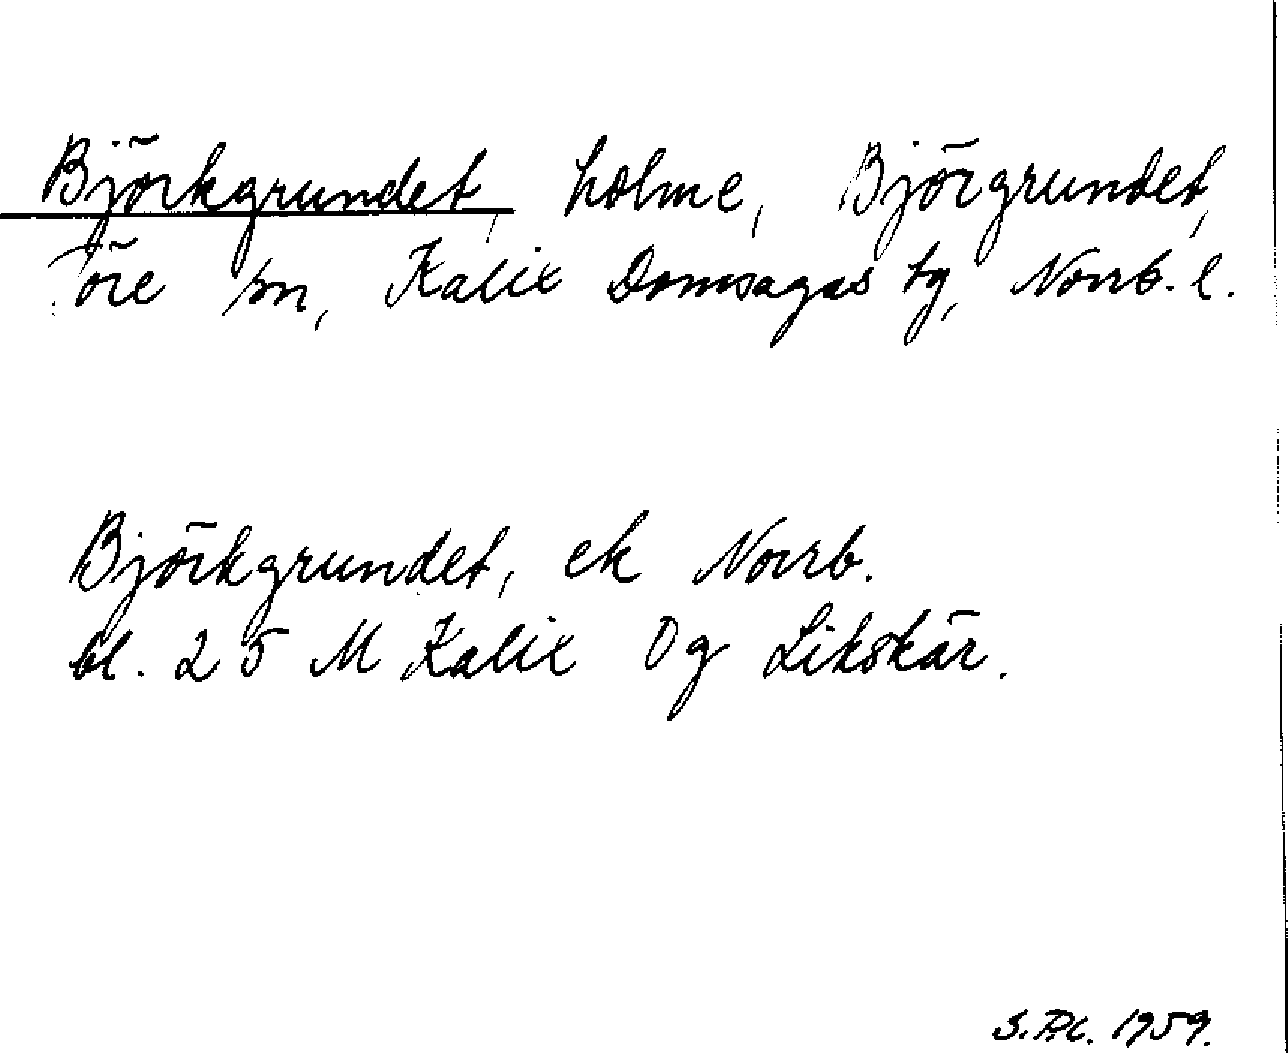 Björkgrundet, holme, Björgrundet,
Töre sn, Kalix Domsagas tg, Norrb. l.
Björkgrundet, ek Norrb.
bl. 25 M Kalix Og Likskär.
1959.